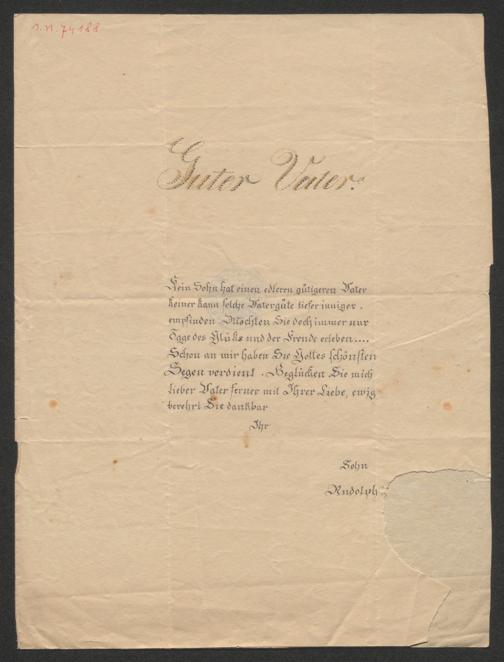 I.N. 74188
Guter Vater.
Kein Sohn hat einen edleren gütigeren Vater
keiner kann solche Vatergüte tiefer inniger.
empfinden Möchten Sie doch immer nur
Tage des Glüks und der Freude erleben....
Schon an mir haben Sie Gottes schönsten
Segen verdient. Beglücken Sie mich
lieber Vater ferner mit Ihrer Liebe, ewig
verehrt Sie dankbar
Ihr
Sohn
Rudolph